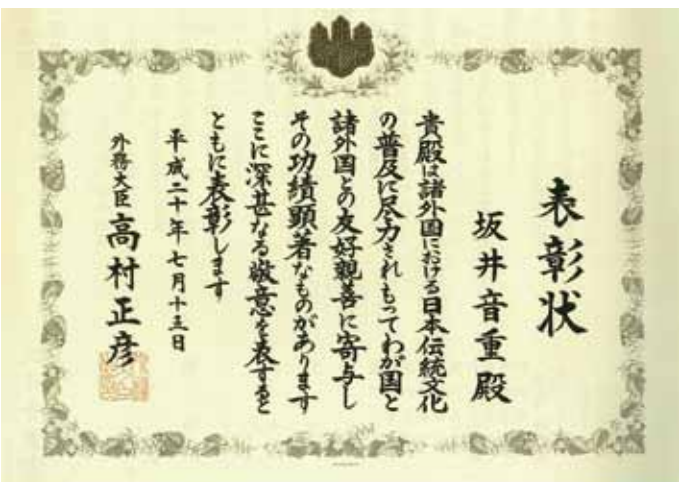 表彰状
坂井音重殿
貴殿は諸外国における日本伝統文化
の普及に尽力されもってわが国と
諸外国との友好親善に寄与し
その功績顕著なものがあります
ここに深甚なる敬意を表すると
ともに表彰します
平成二十年七月十五日
外務大臣 高村正彦